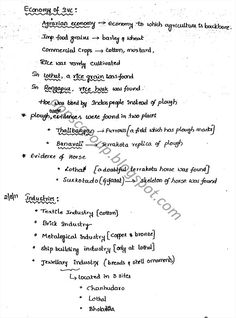 Economy of IVC :
Agrarian economy → Economy to which agriculture is backbone.
Imp food grains → barley & wheat
Commercial Crops → cotton, mustard,
Rice was rarely cultivated
In Lothal, a rice grain was found
In Rangapur, rice husk was found.
Hoe was used by Indus people instead of plough
* plough, evidences were found in two places
Kalibangan → Furrows (a field which has plough marks)
Banavali → terrakota replica of plough
* Evidence of horse
Lothal [a doubtful terrakota horse was found]
Surkotado (Gujarat) → skeleton of horse was found
Industries :
* Textile Industry (cotton)
* Brick Industry
* Metalogical Industry [copper & bronze]
* ship building industry [only at lothal]
* Jewellary Industry (breads & shell ornaments)
↳ located in 3 sites
* Chanhudaro
* Lothal